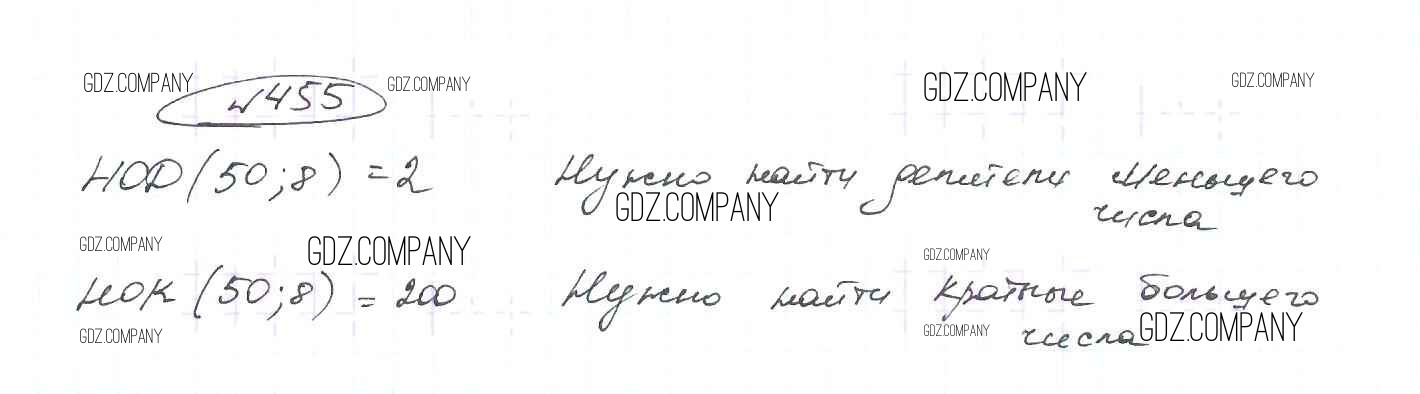 GDZ.COMPANY GDZ.COMPANY GDZ.COMPANY GDZ.COMPANY
№455
НОД (50;8) = 2 Нужно найти делители меньшего
GDZ.COMPANY числа
GDZ.COMPANY GDZ.COMPANY GDZ.COMPANY
НОК (50;8) = 200 Нужно найти кратные большего
GDZ.COMPANY GDZ.COMPANY числа GDZ.COMPANY